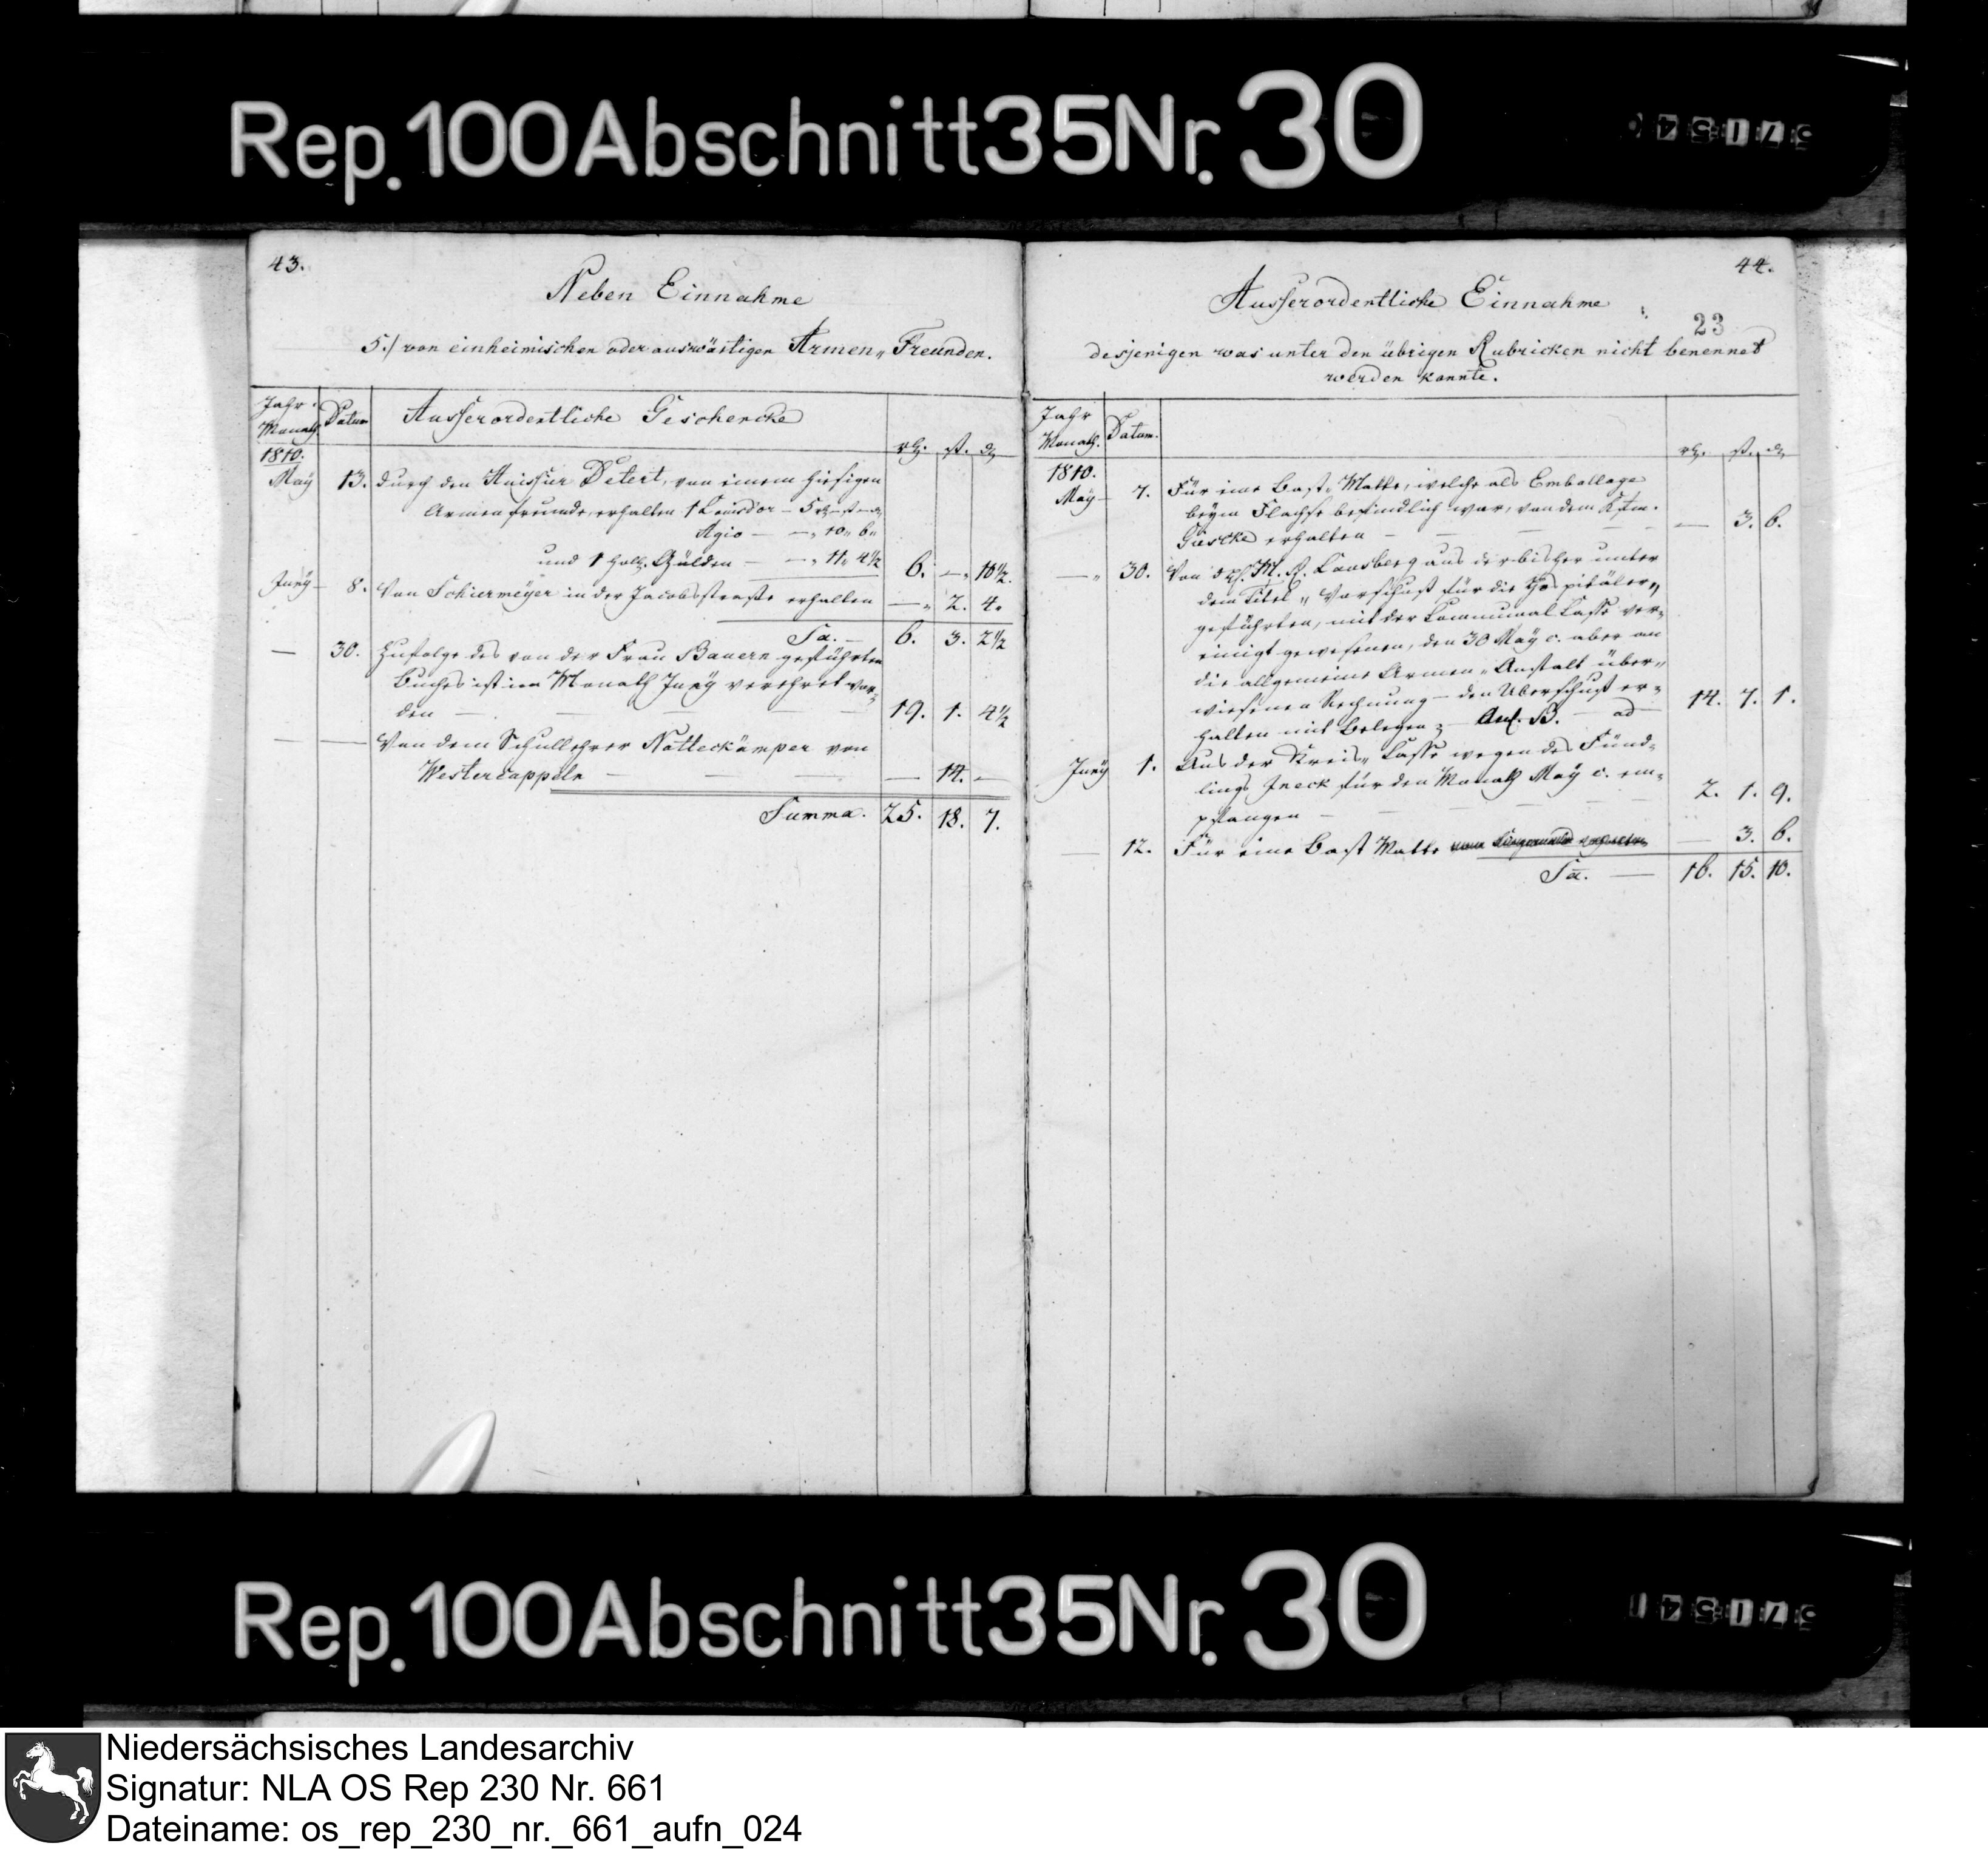 Rep. 100 Abschnitt 35 Nr. 30
43.
Neben Einnahme
5./ von einheimischen oder auswärtigen Armen„ Freunden.
Jahr. Monath. Datum Ausserordentliche Geschencke
rh. ß. d
1810.
May 13. durch den Huissier Detert, von einem hiesigen
Armenfreunde, erhalten 1 Louisd'or — 5
Agio — —„ 10„ 6„
und 1 holl. Gülden — —„ 11„ 4½ 6. —„ 10½.
Juny — 8. Von Schiermeyer in der Jacobsstraße erhalten —„ 2. 4.
Sa. — 6. 3. 2½
— 30. Zufolge des von der Frau Bauern geführten
Buches ist im Monath Juny verehret wor„
den — — — — 19. 1. 4½
— — Von dem Schullehrer Notteckämper von
Westercappeln — — — — 14. —
Summa. 25. 18. 7.
44.
Ausserordentliche Einnahme
23
desjenigen was unter den übrigen Rubricken nicht benennet
werden konnte.
Jahr Monath. Datum.
rh. ß. d
1810.
May — 7. Für eine Bast„ Matte, welche als Emballage
beym Flachse befindlich war, von dem Kfm.
Gieseke erhalten — — — — — 3. 6.
—„ 30. Von M. R. Lansberg aus der bisher unter
dem Titel „ Vorschuß für die Hospitäler„
geführten, mit der Communal Casse ver„
einigt gewesenen, den 30 May c. aber an
die allgemeine Armen„ Anstalt über„
wiesenen Rechnung — den Überschuß er„
halten mit Belegen; Anl. B. — ad 14. 7. 1.
Juny 1. Aus der Kreis„ Casse wegen des Fünd„
lings Ineck für den Monath May c. em„
pfangen — — — — 2. 1. 9.
— 12. Für eine Bast Matte — 3. 6.
Sa. — 16. 15. 10.
Rep. 100 Abschnitt 35 Nr. 30
Niedersächsisches Landesarchiv
Signatur: NLA OS Rep 230 Nr. 661
Dateiname: os_rep_230_nr._661_aufn_024